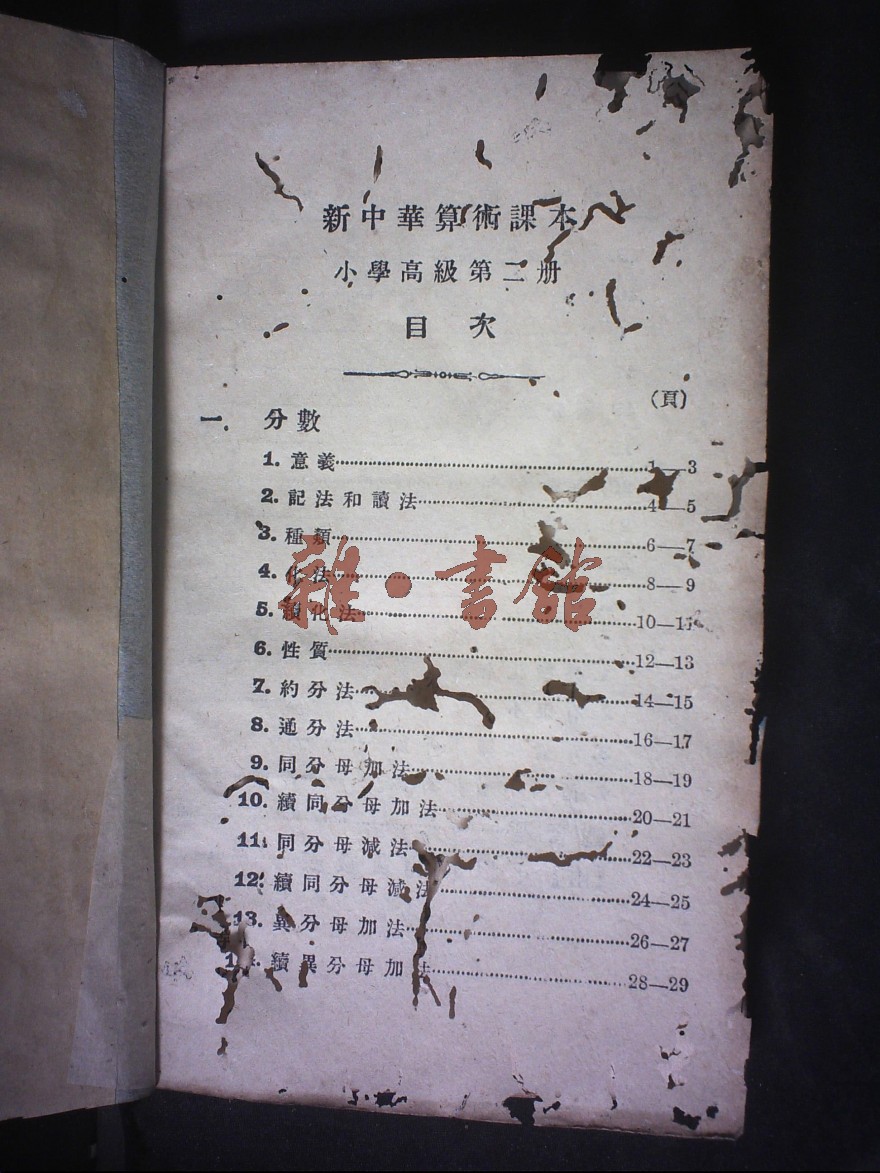 新中華算術課本
小學高級第二册
目次
(頁)
一. 分數
1. 意義 1—3
2. 記法和讀法 4—5
3. 種類 6—7
4. 化法 8—9
5. 續化法 10—11
6. 性質 12—13
7. 約分法 14—15
8. 通分法 16—17
9. 同分母加法 18—19
10. 續同分母加法 20—21
11. 同分母減法 22—23
12. 續同分母減法 24—25
13. 異分母加法 26—27
14. 續異分母加法 28—29
雜·書館